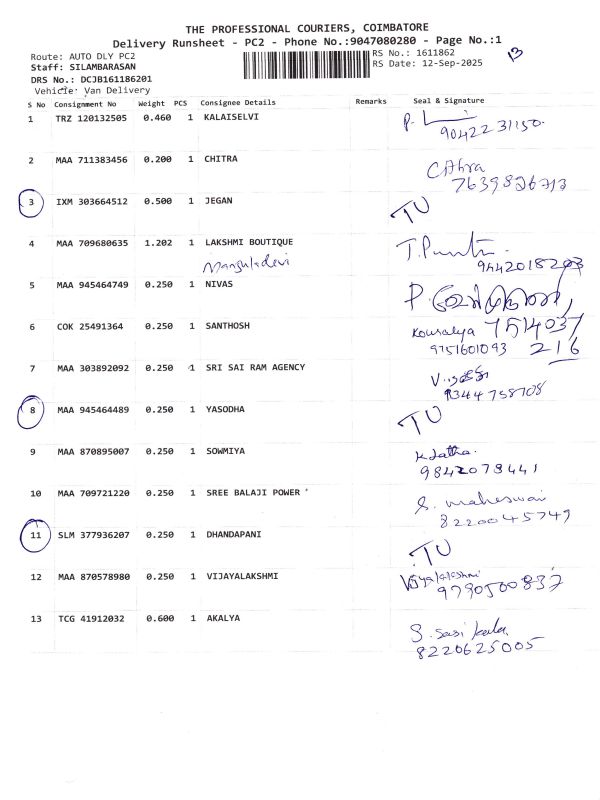 THE PROFESSIONAL COURIERS, COIMBATORE
Delivery Runsheet - PC2 - Phone No.:9047080280 - Page No.:1
Route: AUTO DLY PC2
RS No.: 1611862
Staff: SILAMBARASAN
RS Date: 12-Sep-2025
DRS No.: DCJB161186201
Vehicle: Van Delivery
S No Consignment No Weight PCS Consignee Details Remarks Seal & Signature
1 TRZ 120132505 0.460 1 KALAISELVI P.
9042231150.
2 MAA 711383456 0.200 1 CHITRA
7639826713
3 IXM 303664512 0.500 1 JEGAN TU
4 MAA 709680635 1.202 1 LAKSHMI BOUTIQUE T.
9442018293
5 MAA 945464749 0.250 1 NIVAS P.
6 COK 25491364 0.250 1 SANTHOSH Kousalya 7514037
9751601093 216
7 MAA 303892092 0.250 1 SRI SAI RAM AGENCY
9344758708
8 MAA 945464489 0.250 1 YASODHA TU
9 MAA 870895007 0.250 1 SOWMIYA K. Latha.
9842078441
10 MAA 709721220 0.250 1 SREE BALAJI POWER S. maheswari
8220045749
11 SLM 377936207 0.250 1 DHANDAPANI TU
12 MAA 870578980 0.250 1 VIJAYALAKSHMI Vijayalakshmi
9790500837
13 TCG 41912032 0.600 1 AKALYA S. Sasi kala.
8220625005